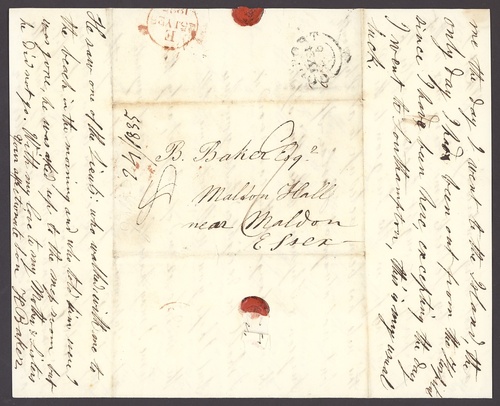 me the day I went to the Island the
only day I have been out from the Hospital
since I have been here, excepting the day
I went to Southampton, this is my usual
luck.
B. Baker Esqr
Maldon Hall
near Maldon
Essex
26/1835
He saw one of the Lieuts: who walked with me to
the beach in the morning and who told him when I
was gone, he was asked up to the mess room but
he did not go. With my love to my Mother & Sisters
Your affectionate son H Baker